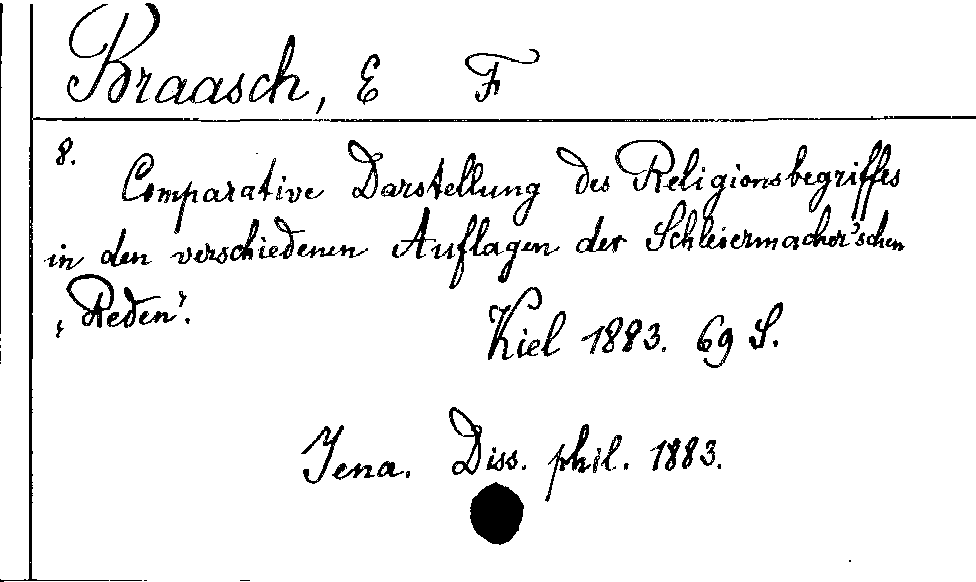 Braasch, E F
8.
Comparative Darstellung des Religionsbegriffes
in den verschiedenen Auflagen der Schleiermacher'schen
„Reden".
Kiel 1883. 69 S.
Jena. Diss. phil. 1883.